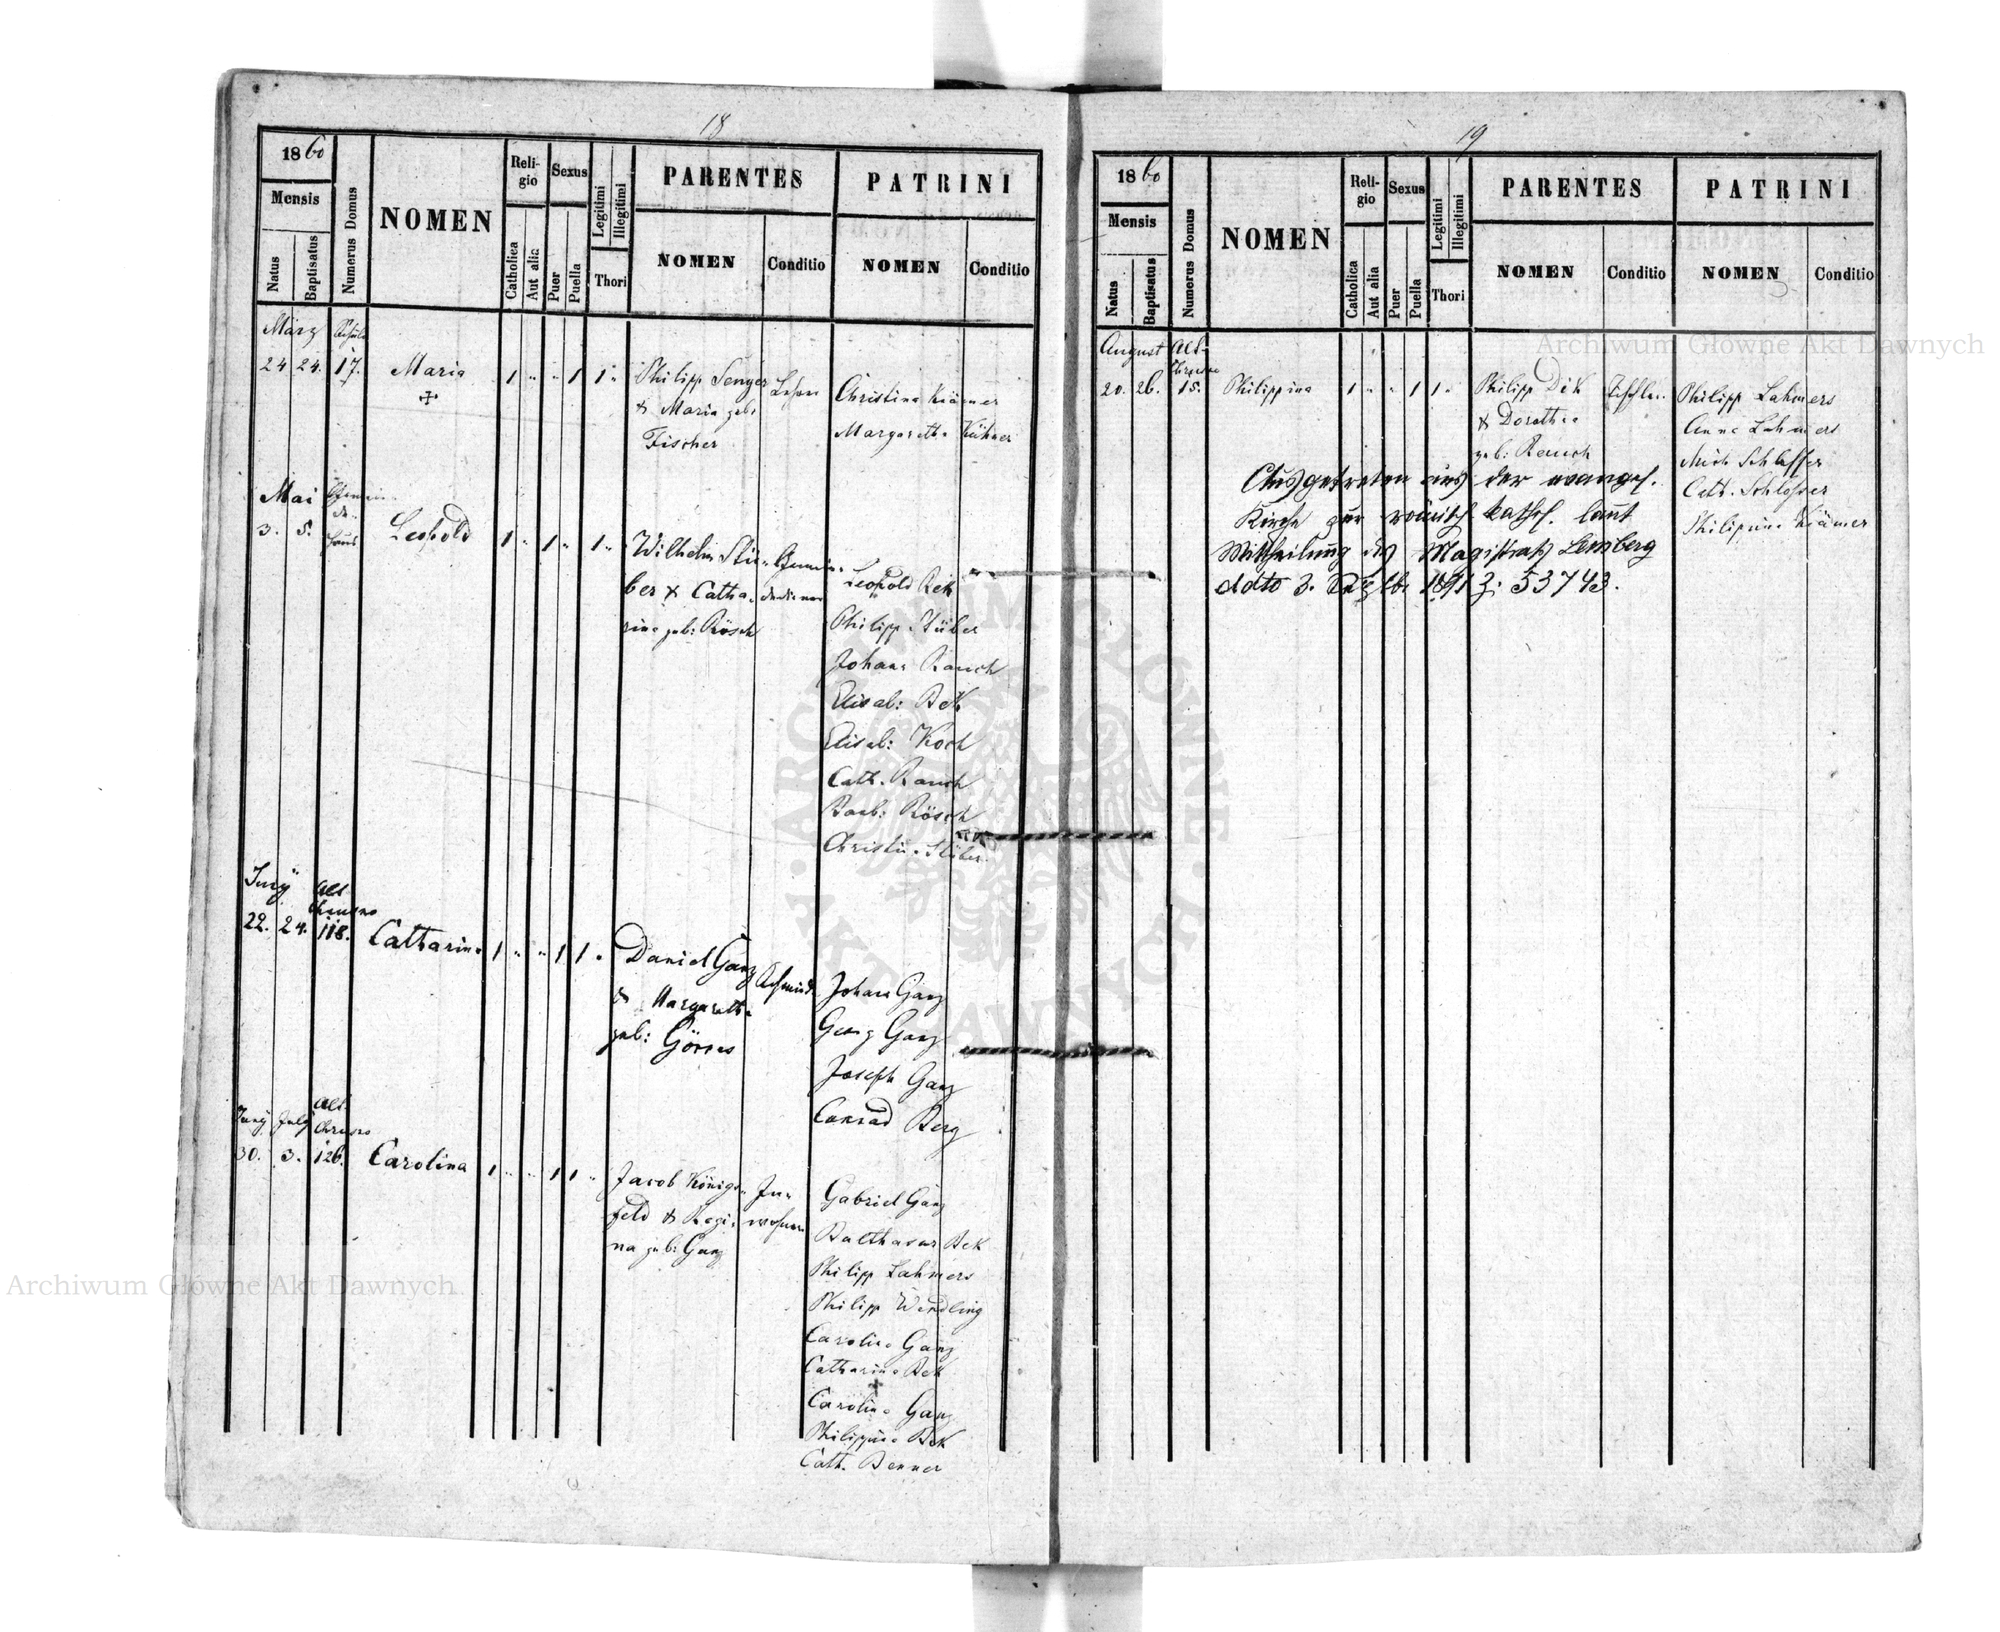 18
1860
Mensis
Natus
Baptisatus
Numerus Domus
NOMEN
Reli-
gio
Catholica
Aut alia
Sexus
Puer
Puella
Legitimi
Illegitimi
Thori
PARENTES
NOMEN
Conditio
PATRINI
NOMEN
Conditio
März
24 24. 17. Maria 1 " " 1 1 "
Philipp Senger
& Maria geb:
Fischer
Christina Krämer
Margaretha Kühner
Mai
3. 5. Leopold 1 " 1 " 1 "
haus
Wilhelm Stü-
ber & Catha-
rina geb: Rösch
Leopold Bek
Philipp Stüber
Johann Rauch
Elisab: Bek
Elisab: Koch
Cath. Rauch
Barb: Rösch
Christin. Stüber
Juny Alt
Chrusno
22. 24. 118. Catharina 1 " " 1 1 "
Daniel Ganz Schmid
& Margaretha
geb: Görres
Johann Ganz
Georg Ganz
Joseph Ganz
Conrad Berg
Juny July Alt
Chrusno
30. 3. 126. Carolina 1 " " 1 1 "
Jacob Königs- In-
feld & Regi- wohner
na geb: Ganz
Gabriel Ganz
Balthasar Bek
Philipp Lahmers
Philipp Wendling
Carolina Ganz
Catharina Bek
Carolina Ganz
Philippina Bek
Cath. Benner
19
1860
Mensis
Natus
Baptisatus
Numerus Domus
NOMEN
Reli-
gio
Catholica
Aut alia
Sexus
Puer
Puella
Legitimi
Illegitimi
Thori
PARENTES
NOMEN
Conditio
PATRINI
NOMEN
Conditio
August Alt-
Chrusno
20. 26. 15. Philippina 1 " " 1 1 "
Philipp Dek Tischler
& Dorothea
geb: Rauch
Philipp Lahmers
Anna Lahmers
Cath. Schlosser
Philippina Krämer
Ausgetreten aus der evangel.
Kirche zur römisch kathol. laut
Mittheilung des Magistrats Lemberg
ddto 3. Septb. 1891 Z. 53743.
Archiwum Główne Akt Dawnych
Archiwum Główne Akt Dawnych
ARCHIWUM GŁÓWNE AKT DAWNYCH